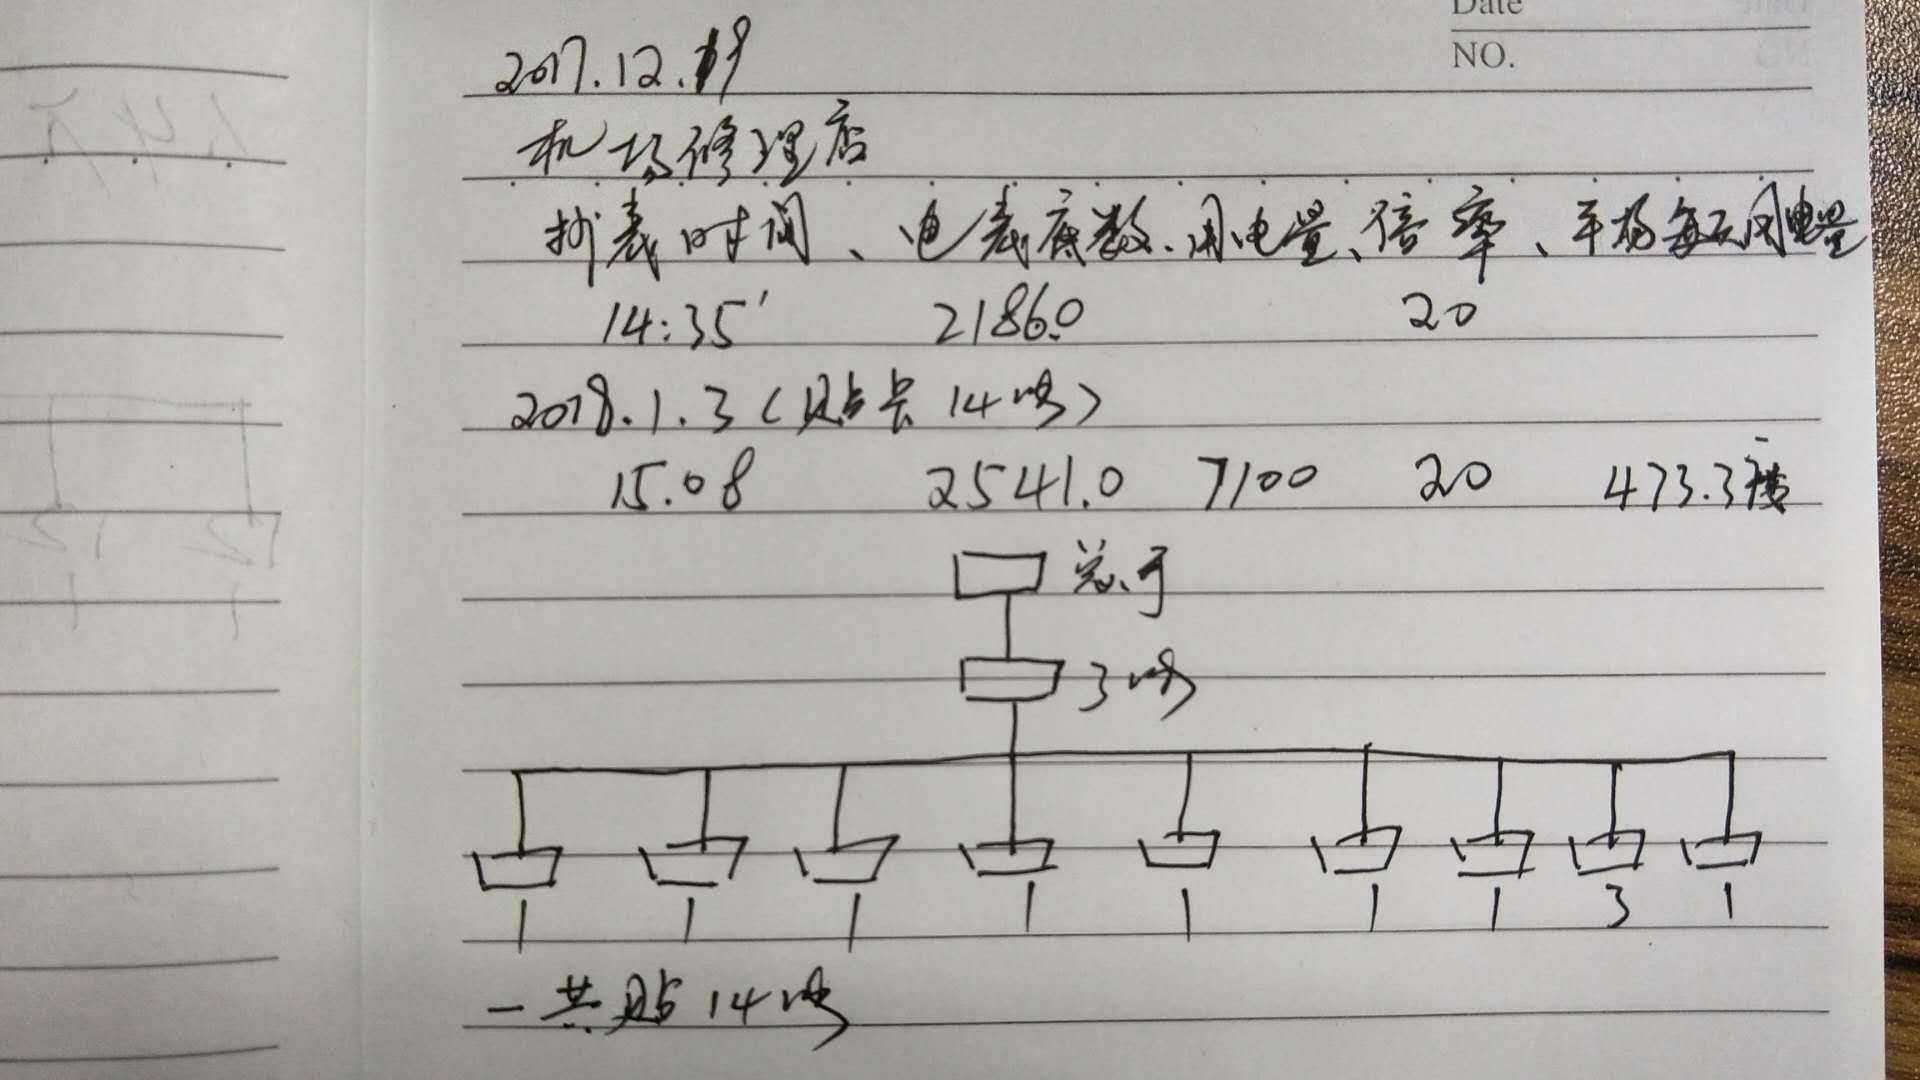 Date
NO.
2017.12.19
机场修理店
抄表时间、电表底数、用电量、倍率、平均每天用电量
14:35' 2186.0 20
2018.1.3(贴长 14块)
15.08 2541.0 7100 20 473.3度
总
3块
1 1 1 1 1 1 1 3 1
一共贴14块